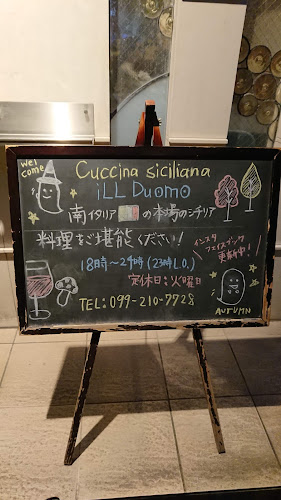 welcome
Cuccina siciliana
iLL Duomo
南イタリアの本場のシチリア
料理をご堪能ください!
インスタ
フェイスブック
更新中!
18時〜24時(23時L.O.)
定休日:火曜日
TEL:099-210-7728
AUTUMN